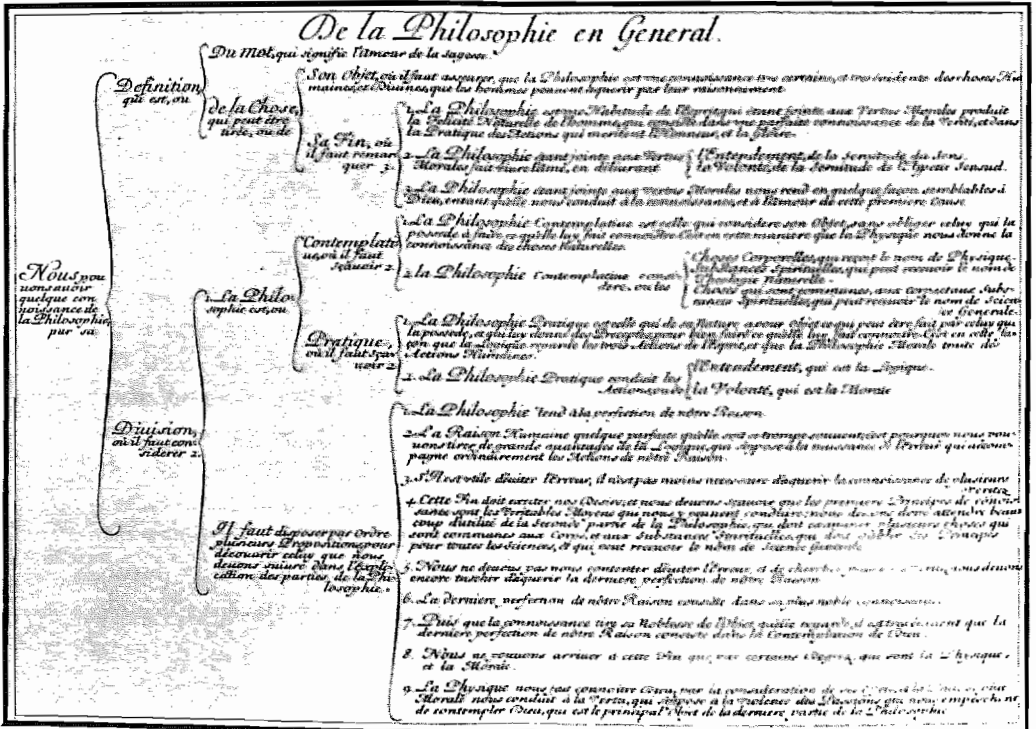 De la Philosophie en General.
Nous pou
uons auoir
quelque con
noissance de
la Philosophie,
par sa
Definition,
qui est, ou
Du Mot, qui signifie l'amour de la sagesse.
de la Chose,
qui peut être
tirée, ou de
Son Objet, où il faut asseurer, que la Philosophie est une connoissance tres certaine, et tres évidente des choses Hu
maines, et Diuines, que les hommes peuuent aquerir par leur raisonnement.
Sa Fin, où
il faut remar
quer 3.
1. La Philosophie est une Habitude de l'Esprit, qui étant jointe aux Vertus Morales produit
la Felicité Naturelle de l'homme, qui consiste dans une parfaite connoissance de la Verité, et dans
la Pratique des Actions qui meritent l'Honneur, et la Gloire.
2. La Philosophie étant jointe aux Vertus
Morales fait l'homme, en déliurant
l'Entendement, de la seruitude du Sens.
la Volonté, de la seruitude de l'Apetit Sensuel.
3. La Philosophie étant jointe aux Vertus Morales nous rend en quelque façon semblables à
Dieu, entant qu'elle nous conduit à la connoissance, et à l'amour de cette premiere Cause.
Diuision,
où il faut con
siderer 2.
1. La Philo
sophie est, ou
Contemplati
ue, où il faut
sçauoir 2.
1. La Philosophie Contemplatiue est celle qui considere son Objet, sans obliger celuy qui la
possede à faire ce qu'elle luy fait connoître. C'est en cette maniere que la Physique nous donne la
connoissance des choses Naturelles.
2. la Philosophie Contemplatiue consi
dere, ou les
Choses Corporelles, qui reçoit le nom de Physique.
Substances Spirituelles, qui peut receuoir le nom de
Theologie Naturelle.
Choses qui sont communes, aux corps, et aux Subs
tances Spirituelles, qui peut receuoir le nom de Scien
ce Generale.
Pratique,
où il faut sça
uoir 2.
1. La Philosophie Pratique est celle qui de sa Nature a pour objet ce qui peut être fait par celuy qui
la possede, et qui luy donne des Preceptes pour bien faire ce qu'elle luy fait connoître. C'est en cette fa
çon que la Logique regarde les trois Actions de l'Esprit, et que la Philosophie Morale traite des
Actions Humaines.
2. La Philosophie Pratique conduit les
Actions, ou de
l'Entendement, qui est la Logique.
la Volonté, qui est la Morale
Il faut disposer par Ordre
plusieurs Propositions, pour
découurir celuy que nous
deuons suiure dans l'Expli
cation des parties, de la Phi
losophie.
1. La Philosophie tend à la perfection de nôtre Raison
2. La Raison Humaine quelque parfaite qu'elle soit se trompe souuent; c'est pourquoy nous pou
uons tirer de grands auantages de la Logique, qui s'oppose à la naissance de l'Erreur qui accom
pagne ordinairement les Actions de nôtre Raison.
3. S'Il est utile d'éuiter l'Erreur, il n'est pas moins necessaire d'aquerir la connoissance de plusieurs
Veritez
4. Cette Fin doit exciter nos Desirs, et nous deuons sçauoir que les premiers Principes de connois
sance sont les Veritables Moyens qui nous y peuuent conduire; nous deuons donc attendre beau
coup d'utilité de la Seconde partie de la Philosophie, qui doit examiner plusieurs choses qui
sont communes aux Corps, et aux Substances Spirituelles, qui doit établir des Principes
pour toutes les Sciences, et qui peut receuoir le nom de Science Generale
5. Nous ne deuons pas nous contenter d'éuiter l'Erreur, et de chercher nous deuons
encore tascher d'aquerir la derniere perfection de nôtre Raison
6. La derniere perfection de nôtre Raison consiste dans sa plus noble connoissance.
7. Puis que la connoissance tire sa Noblesse de l'Objet qu'elle regarde, il est que la
derniere perfection de nôtre Raison consiste dans la Contemplation de Dieu.
8. Nous ne pouuons arriuer à cette Fin que par certains Degrez, qui sont la Physique,
et la Morale.
9. La Physique nous fait connoitre Dieu, par la consideration de ses
Morale nous conduit à la Vertu, qui s'oppose à la Violence des Passions qui nous empêchent
de contempler Dieu, qui est le principal Objet de la derniere partie de la Philosophie